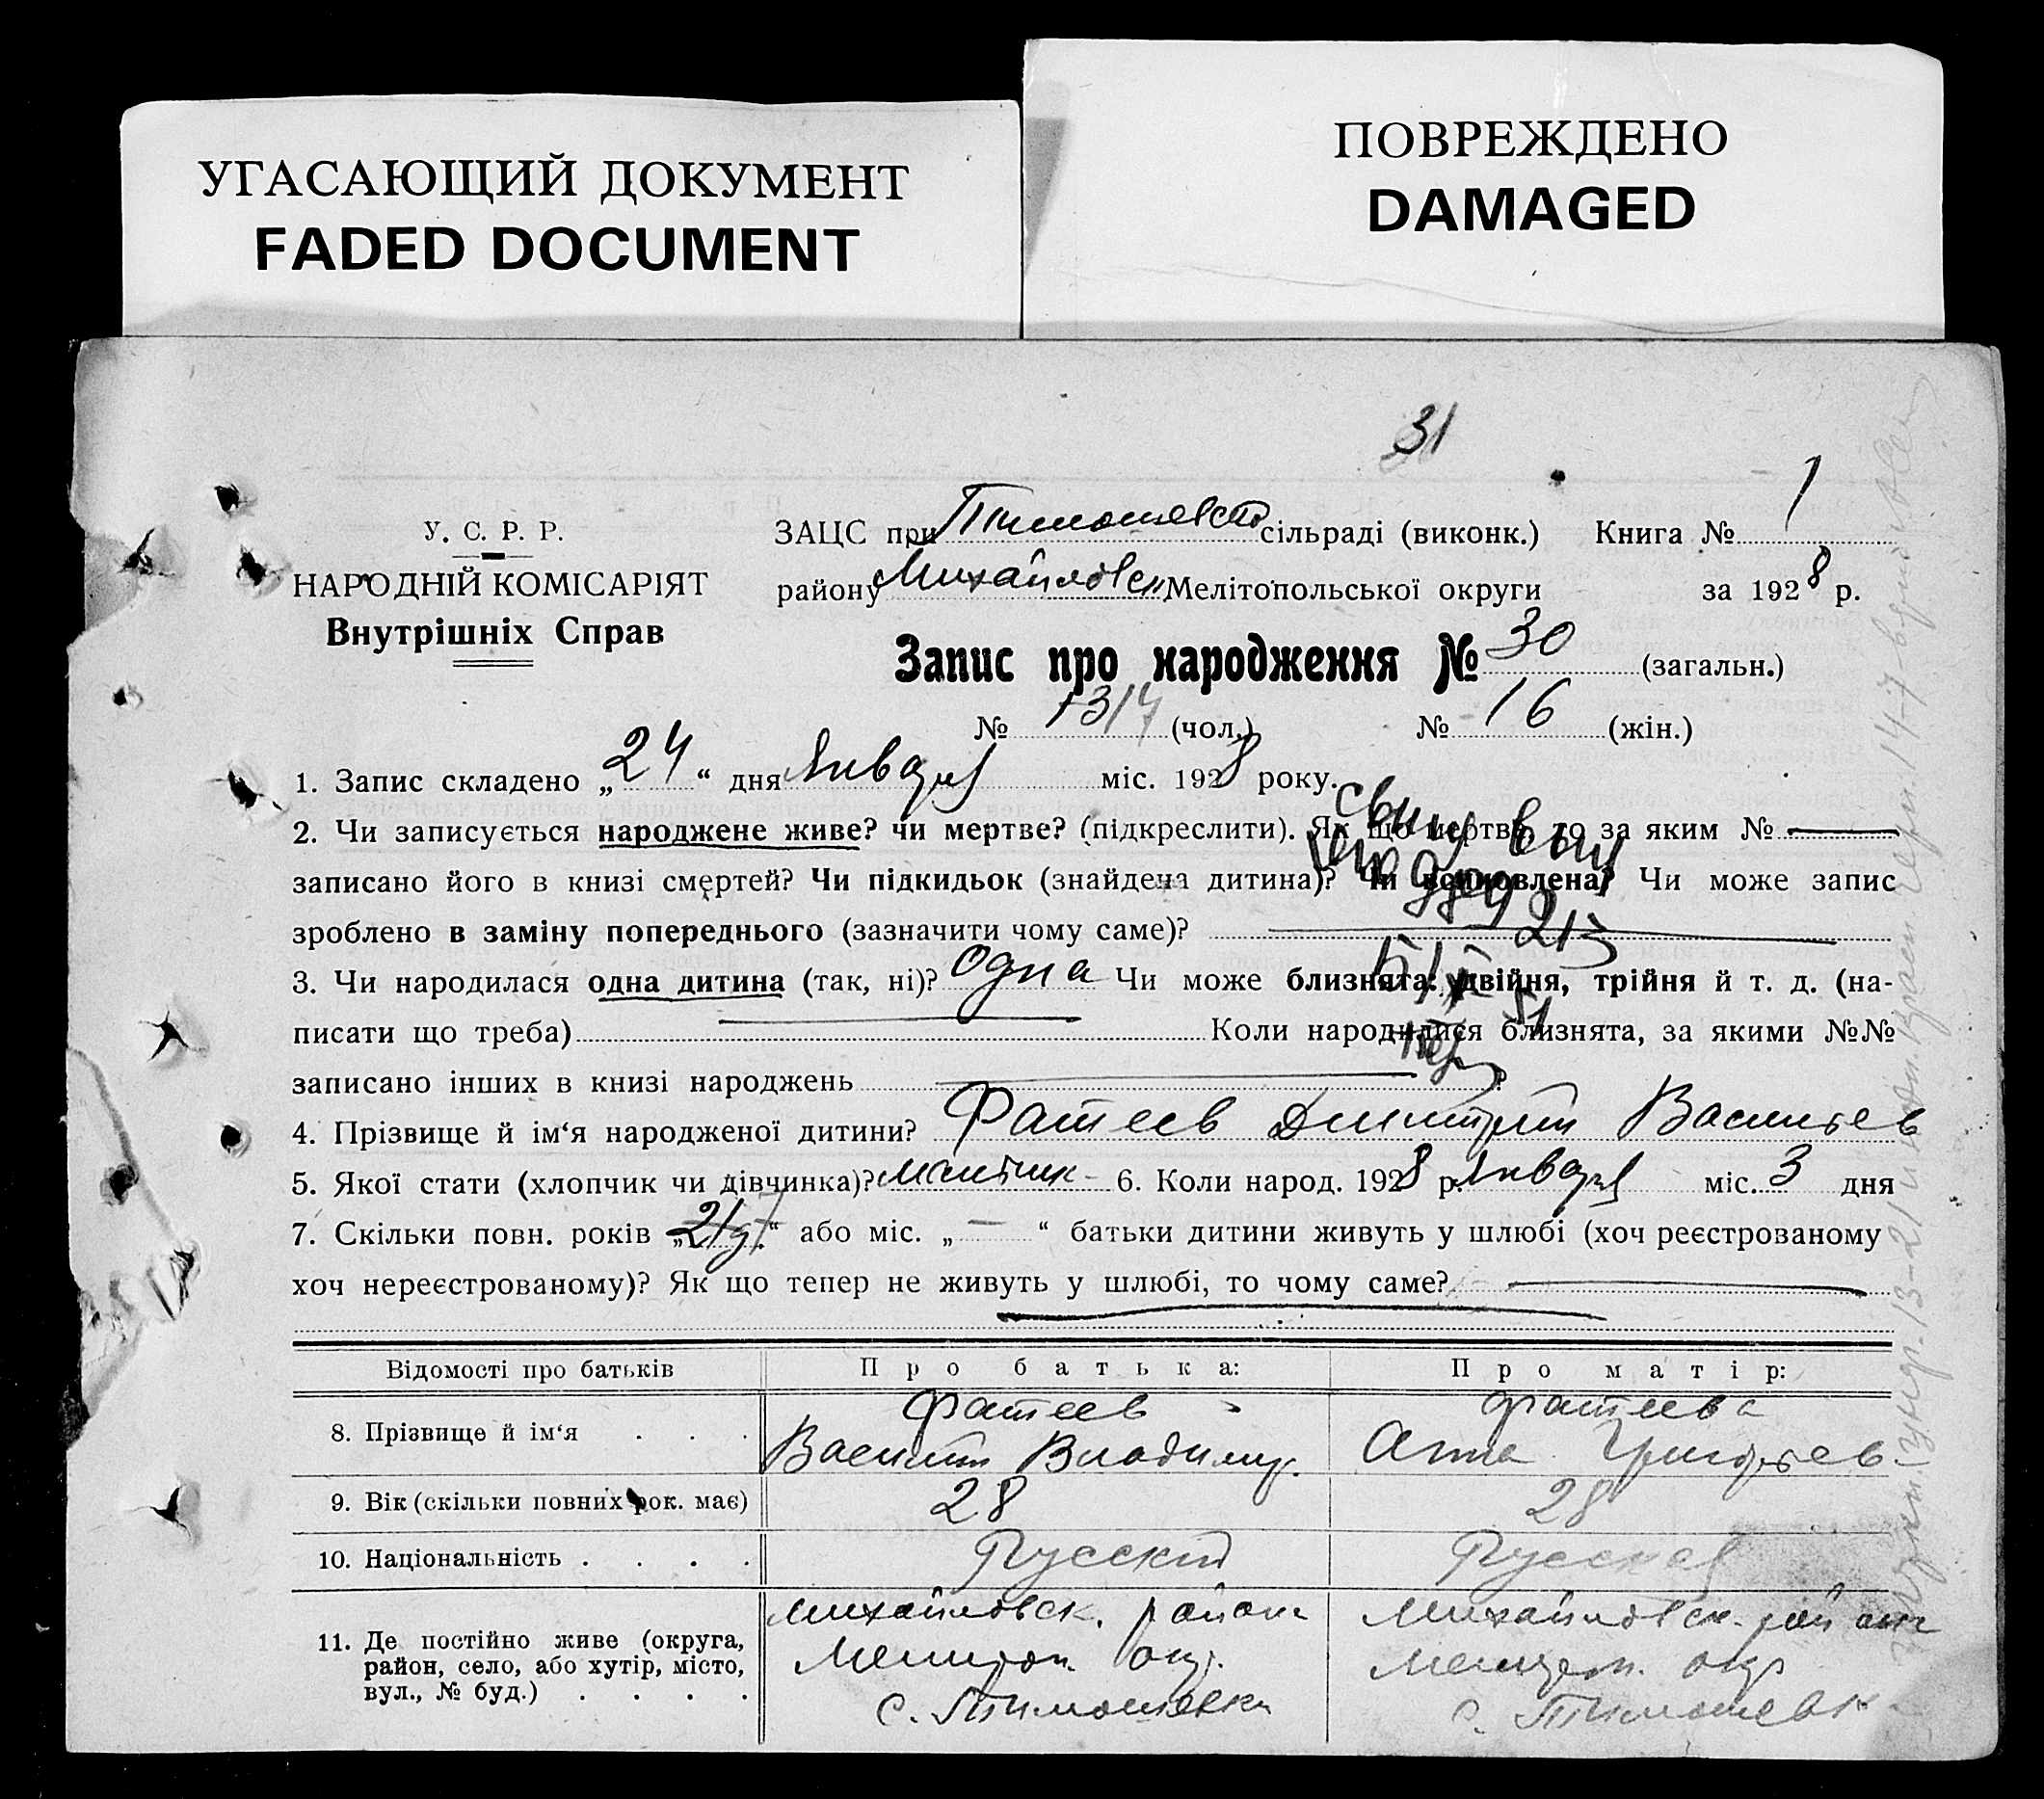 УГАСАЮЩИЙ ДОКУМЕНТ
FADED DOCUMENT
ПОВРЕЖДЕНО
DAMAGED
31
У. С. Р. Р.
НАРОДНІЙ КОМІСАРІЯТ
Внутрішніх Справ
ЗАЦС при Тимошевско сільраді (виконк.) Книга № 1
району Михайловск Мелітопольської округи за 1928 р.
Запис про народження № 30 (загальн.)
№ 14 (чол.) № 16 (жін.)
1. Запис складено „24“ дня Января міс. 1928 року.
2. Чи записується народжене живе? чи мертве? (підкреслити). Як що мертве, то за яким №
записано його в книзі смертей? Чи підкидьок (знайдена дитина)? Чи всиновлена? Чи може запис
зроблено в заміну попереднього (зазначити чому саме)?
3. Чи народилася одна дитина (так, ні)? Одна Чи може близнята: двійня, трійня й т. д. (на-
писати що треба) Коли народилися близнята, за якими №№
записано інших в книзі народжень ?
4. Прізвище й ім‘я народженої дитини? Фатеев Димитрий Васильев
5. Якої стати (хлопчик чи дівчинка)? мальчик 6. Коли народ. 1928 р. Января міс. 3 дня
7. Скільки повн. років „ “ або міс. „—“ батьки дитини живуть у шлюбі (хоч реєстрованому
хоч нереєстрованому)? Як що тепер не живуть у шлюбі, то чому саме?
Відомості про батьків Про батька: Про матір:
8. Прізвище й ім‘я . . . Фатеев Василий Владимир. Фатеева Анна Григорьев-
9. Вік (скільки повних рок. має) 28 28
10. Національність . . . . Русский Русская
11. Де постійно живе (округа, район, село, або хутір, місто, вул., № буд.) . . . .
Михайловск. района Мелитоп. окр. с. Тимошевки
Михайловск. района Мелитоп. окр с. Тимошевк